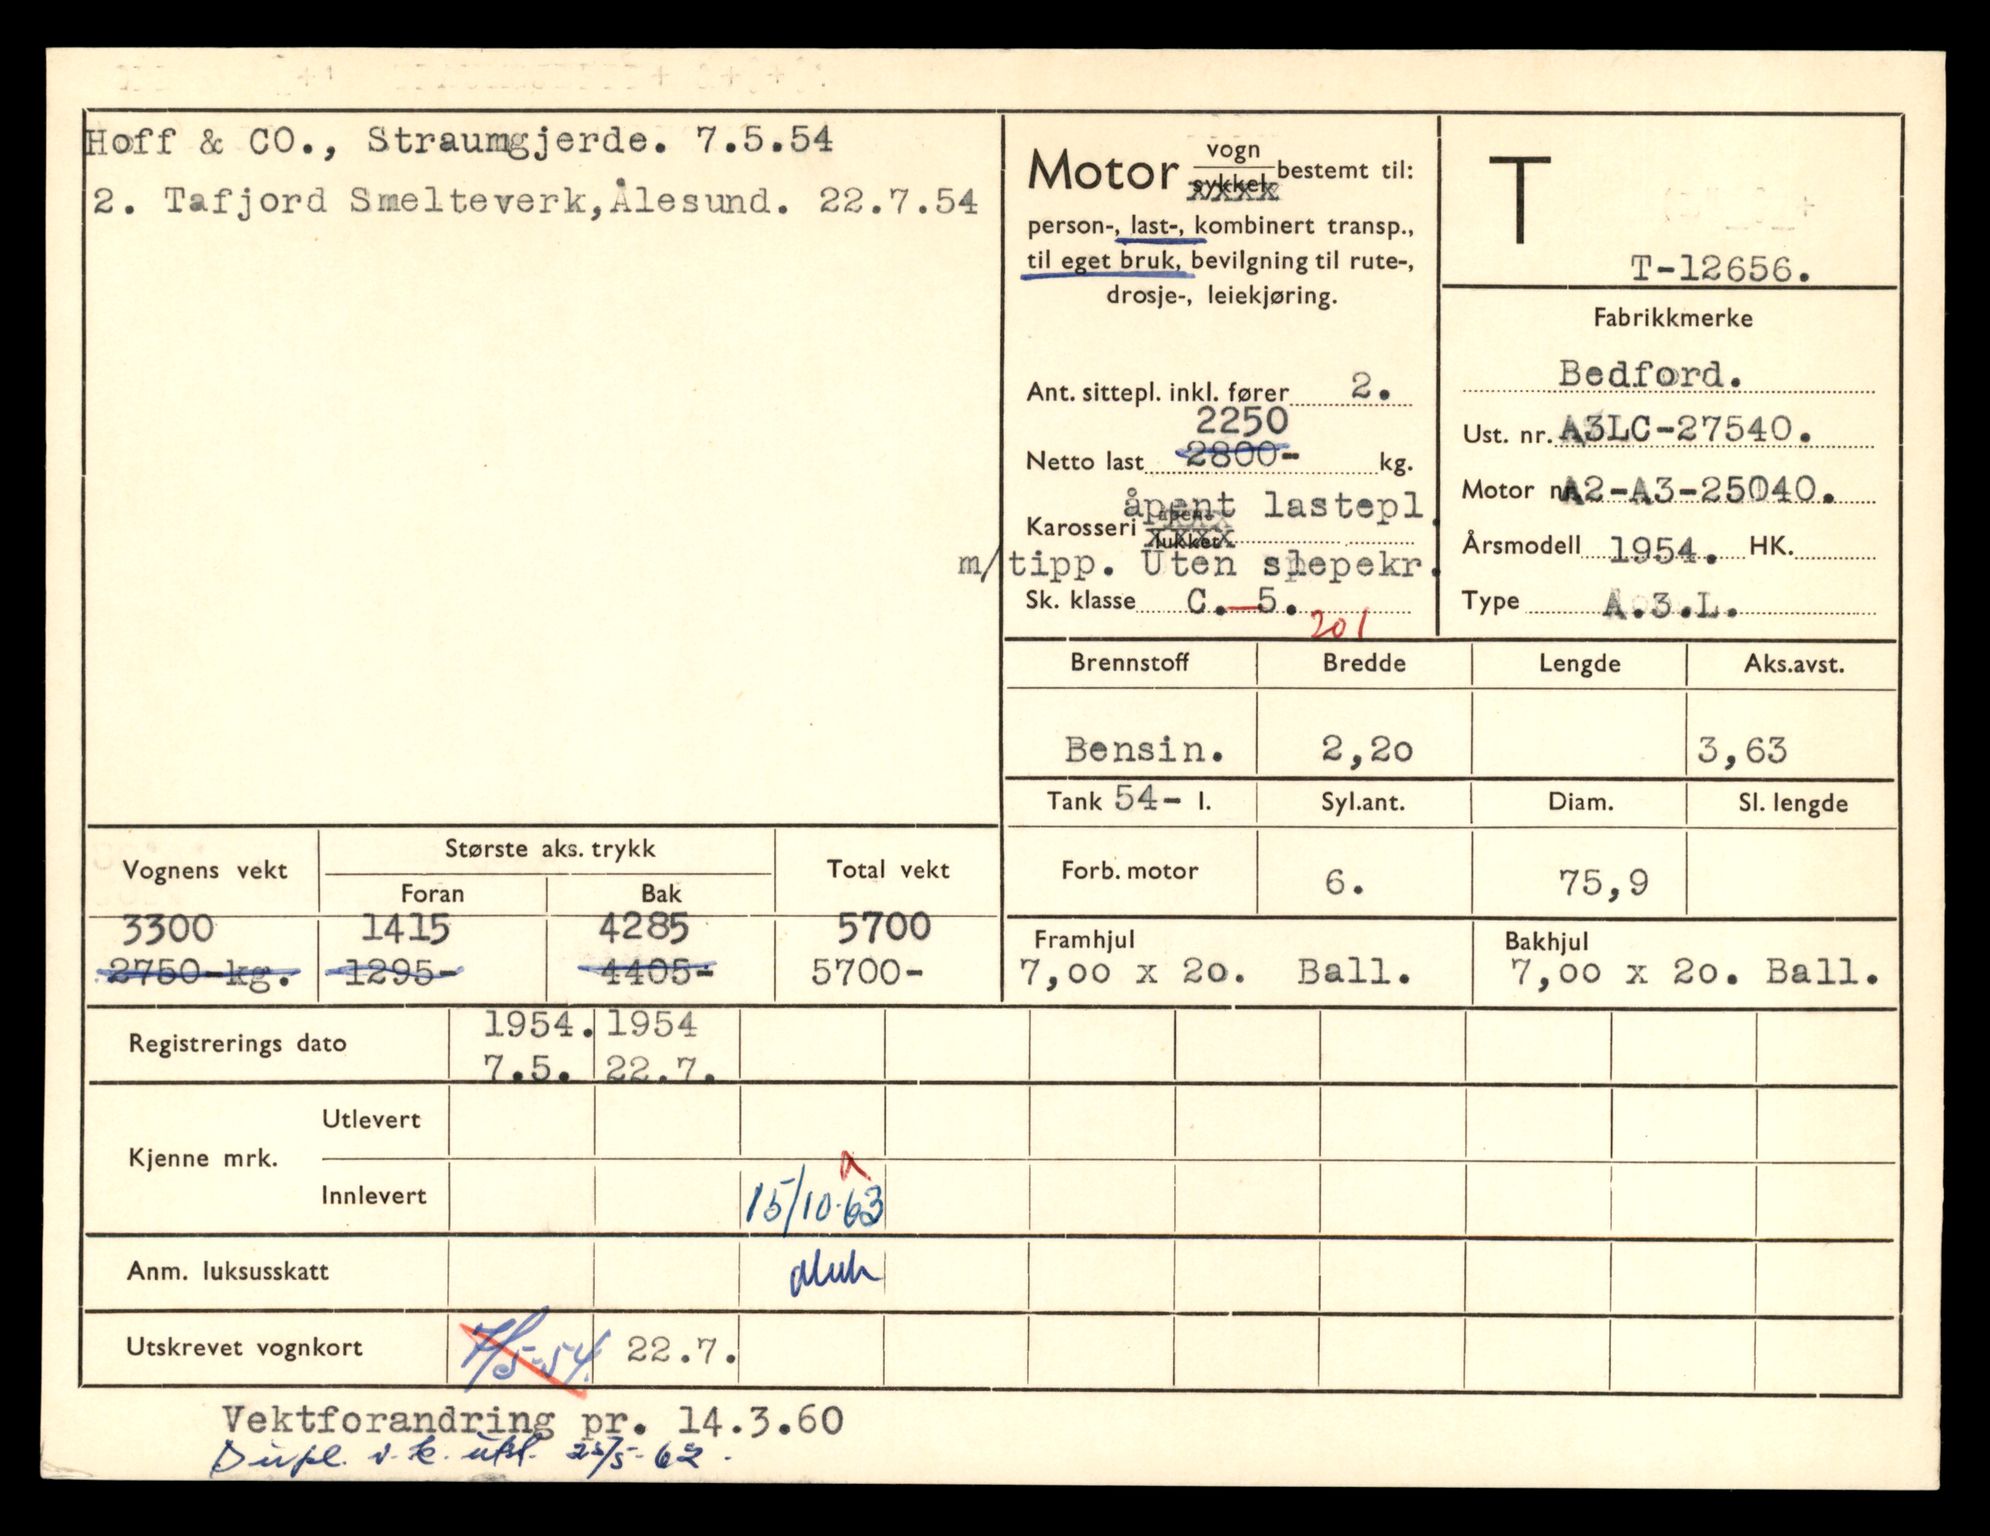 Hoff & CO., Straumgjerde. 7.5.54
2. Tafjord Smelteverk, Ålesund. 22.7.54
Motor vogn sykkel bestemt til:
person-, last-, kombinert transp.,
til eget bruk, bevilgning til rute-,
drosje-, leiekjøring.
Ant. sittepl. inkl. fører 2.
2250
Netto last 2800- kg.
åpent lastepl.
Karosseri åpent lukket
m/tipp. Uten slepekr.
Sk. klasse C.-5.
201
T
T-12656.
Fabrikkmerke
Bedford.
Ust. nr. A3LC-27540.
Motor nr. A2-A3-25040.
Årsmodell 1954. HK.
Type A.3.L.
Brennstoff Bredde Lengde Aks.avst.
Bensin. 2,20 3,63
Tank 54- l. Syl.ant. Diam. Sl. lengde
Forb. motor 6. 75,9
Framhjul Bakhjul
7,00 x 20. Ball. 7,00 x 20. Ball.
Vognens vekt Største aks. trykk Total vekt
Foran Bak
3300 1415 4285 5700
2750-kg. 1295- 4405- 5700-
Registrerings dato 1954. 1954
7.5. 22.7.
Kjenne mrk. Utlevert
Innlevert 15/10-63
Anm. luksusskatt
Utskrevet vognkort 7/5-54. 22.7.
Vektforandring pr. 14.3.60
Dupl. v.k. utst. 25/5-62.